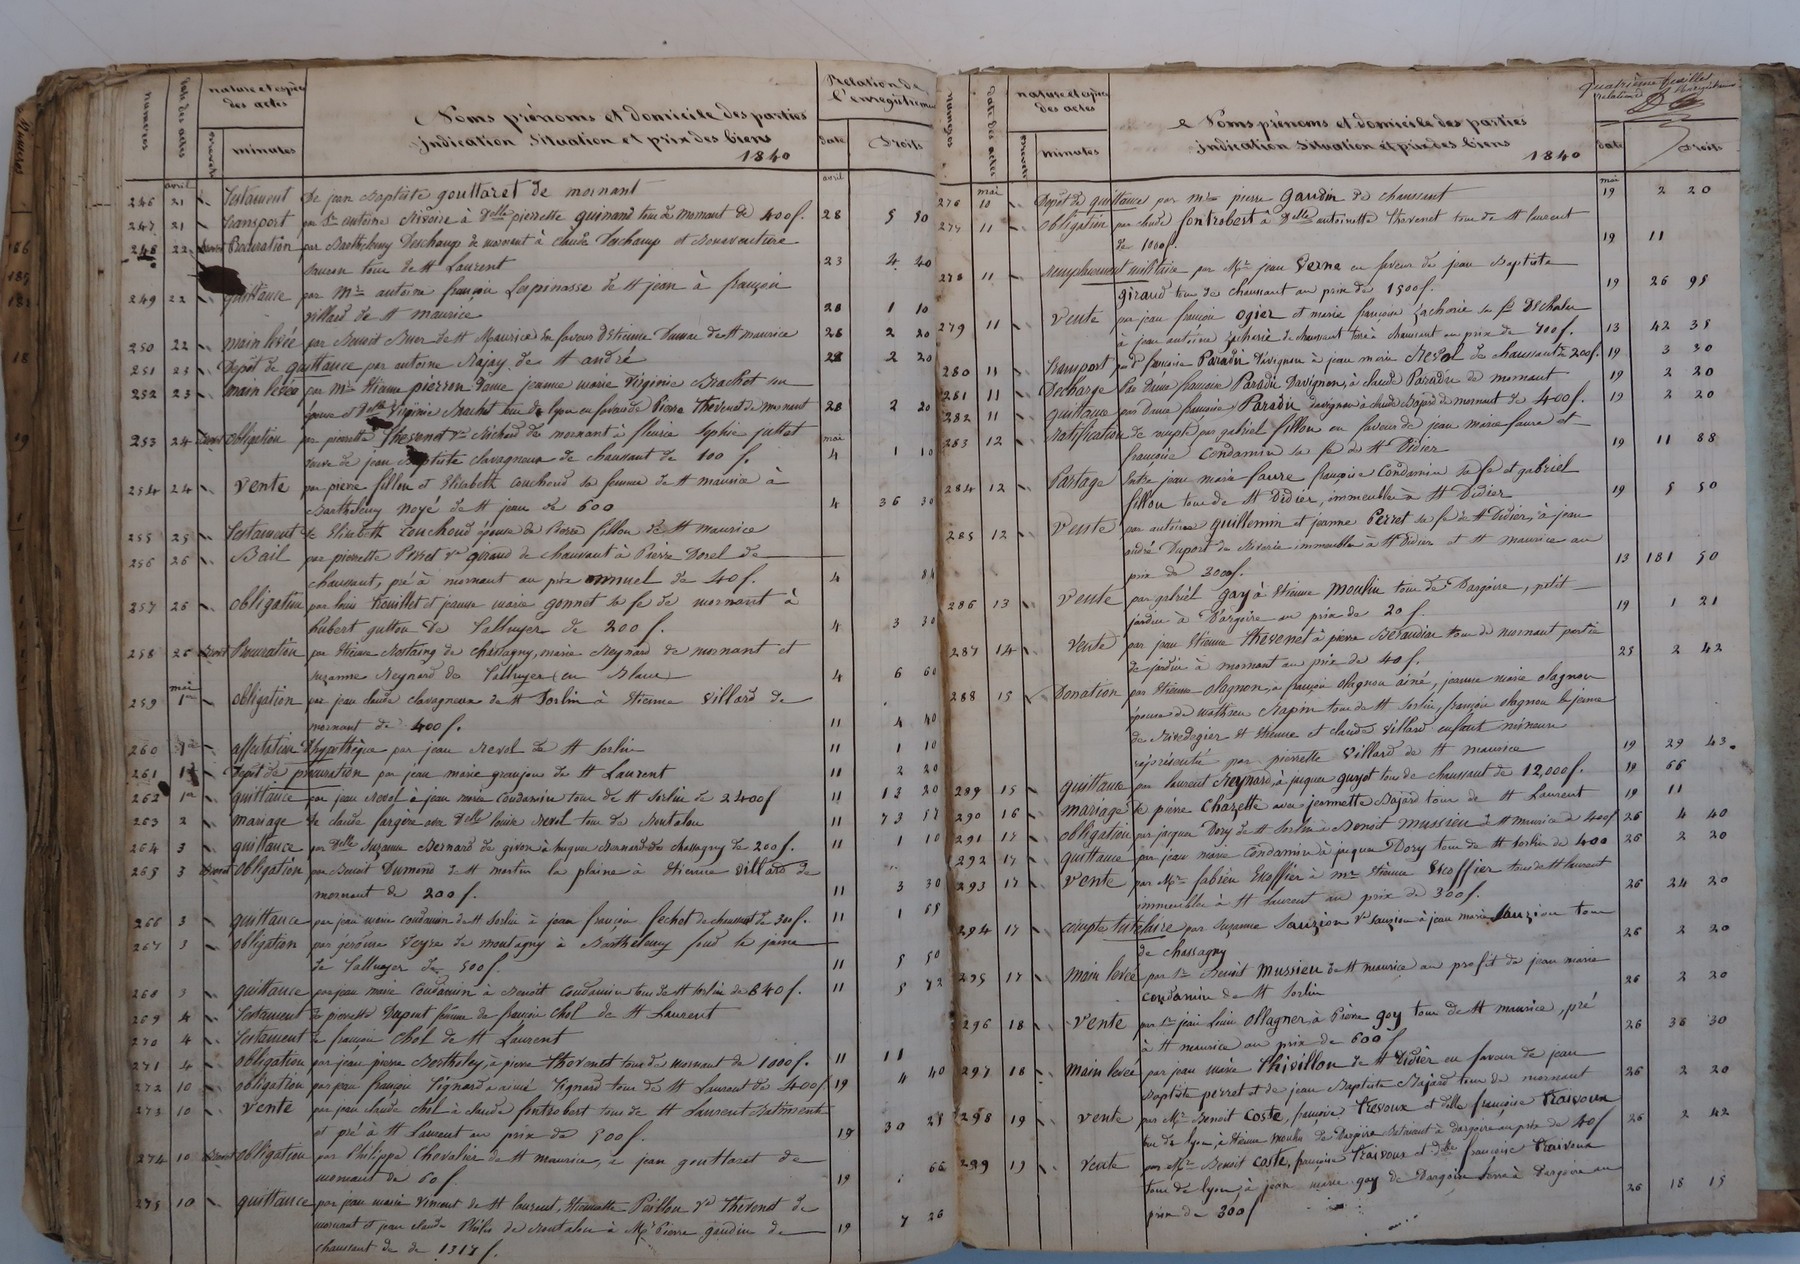 numéros
date des actes
nature et espèce
des actes
brevets
minutes
Noms prénoms et domicile des parties
indication situation et prix des biens
1840
Relation de
l'enregistrement
date
Droits
avril
avril
246 21 Testament De jean Baptiste gouttaret de mornant
247 21 Transport par antoine Rivoire à Delle pierrette guinand tous de mornant de 400 f. 28 5 50
248 22 Brevet Procuration par Barthélemy Deschamp de mornant à claude Deschamp et Bonaventure
tous de St Laurent 23 4 40
249 22 quittance par Mre antoine françois Lespinasse de St jean à françois
villard de St maurice 28 1 10
250 22 main levée par Benoit de St Maurice en faveur d'Etienne de St maurice 28 2 20
251 23 Depôt de quittance par antoine de St andré 28 2 20
252 23 main levée par Mre Etienne pierron Dame jeanne marie Virginie Brachet son
épouse et Delle Virginie Brachet tous de lyon en faveur de Pierre Thevenet de mornant 28 2 20
253 24 Brevet obligation par pierrette Thevenet Ve Richard de mornant à fleurie Sophie juttet mai
veuve de jean Baptiste clavagneux de chaussant de 100 f. 4 1 10
254 24 Vente par pierre fillon et Elizabeth Couchoud sa femme de St maurice à
Barthélemy noyé de St jean de 600 4 36 30
255 25 Testament de Elizabeth Couchoud épouse de Pierre fillon de St maurice
256 26 Bail par pierrette Perret Ve giraud de chaussant à Pierre Dorel de
chaussant, pré à mornant au prix annuel de 40 f. 4 84
257 26 obligation par louis et jeanne marie gonnet sa fe de mornant à
hubert gutton de Talluyer de 200 f. 4 3 30
258 26 Brevet Procuration par Etienne de chassagny, marie Reynard de mornant et
suzanne Reynard de Talluyer (en Blanc) 4 6 60
mai
259 1er obligation par jean claude clavagneux de St Sorlin à Etienne Villard de
mornant de 400 f. 11 4 40
260 1er affectation d'hypothèque par jean Revol de St Sorlin 11 1 10
261 1er Depôt de procuration par jean marie de St Laurent 11 2 20
262 1er quittance par jean Revol à jean marie Condamin tous de St Sorlin de 2400 f 11 13 20
263 2 mariage de claude avec Delle louise Revol tous de Rontalon 11 73
264 3 quittance par Delle Suzanne Bernard de givors à hugues Bernard de chassagny de 200 f. 11 1 10
265 3 Brevet obligation par Benoit Dumond de St martin la plaine à Etienne Villard de
mornant de 200 f. 11 3 30
266 3 quittance par jean marie condamin de St Sorlin à jean françois fechet de chaussant de 300 f. 11 1 65
267 3 obligation par jérôme Veyre de montagny à Barthélemy le jeune
de Talluyer de 500 f. 11 5 50
268 3 quittance par jean marie Condamin à Benoit Condamin tous de St Sorlin de 840 f. 11 5
269 4 Testament de pierrette Duport femme de françois Chol de St Laurent
270 4 Testament de françois Chol de St Laurent
271 4 obligation par jean pierre Bertholey, à pierre Thevenet tous de mornant de 1000 f. 11 11
272 10 obligation par françois à Vignard tous de St Laurent de 400 f 19 4 40
273 10 Vente par jean claude Chol à claude fontrobert tous de St Laurent Batiment
et pré à St Laurent au prix de 500 f. 19 30 25
274 10 Brevet obligation par Philippe Chevalier de St maurice, à jean gouttaret de
mornant de 60 f 19 66
275 10 quittance par jean marie Vincent de St Laurent, Etiennette Peillon Ve Thevenet de
mornant et jean claude de Rontalon à Mre Pierre gaudin de 19 7 26
chaussant de
numéros
date des actes
nature et espèce
des actes
brevets
minutes
Noms prénoms et domicile des parties
indication situation et prix des biens
1840
quatrième feuillet
date
Droits
mai
mai
276 10 Depôt de quittance par Mre pierre Gaudin de chaussant 19 2 20
277 11 obligation par claude fontrobert à Delle antoinette Thevenet tous de St Laurent
de 1000 f. 19 11
278 11 remplacement militaire par Mre jean Verne en faveur de jean Baptiste
giraud tous de chaussant au prix de 1500 f. 19 26 95
279 11 Vente par jean françois Ogier et marie françoise Zacherie sa fe
à jean antoine Zacherie de chaussant terre à chaussant au prix de 700 f. 13 42 35
280 11 Transport par De françoise Paradis Davignon à jean marie Revol de chaussant de 200 f. 19 3 30
281 11 Decharge Par Dame françoise Paradis Davignon, à claude Paradis de mornant 19 2 20
282 11 quittance par Dame françoise Paradis davignon à claude Bajard de mornant de 400 f. 19 2 20
283 12 Ratification de par gabriel fillon en faveur de jean marie faure et
françoise Condamin sa fe de St Didier 19 11 88
284 12 Partage Entre jean marie faure françoise Condamin sa fe et gabriel
fillon tous de St Didier, immeubles à St Didier 19 5 50
285 12 Vente par antoine guillermin et jeanne Perret sa fe de St Didier, à jean
andré Duport de Riverie immeubles à St Didier et St maurice au
prix de 3000 f. 13 181 50
286 13 Vente par gabriel gay à Etienne Moulin tous de Dargoire, petit
jardin à Dargoire au prix de 20 f. 19 1 21
287 14 Vente par jean Etienne Thevenet à pierre Beraudiat tous de mornant partie
de jardin à mornant au prix de 40 f. 25 2 42
288 15 Donation par Etienne Olagnon, à françois Olagnon ainé, jeanne marie Olagnon
épouse de Mathieu Rapin tous de St Sorlin, françois Olagnon le jeune
de Rivedegier et Etienne et claude Villard enfants mineurs
représentés par pierrette Villard de St maurice 19 29 43
289 15 quittance par laurent Reynard, à jacques guyot tous de chaussant de 12,000 f. 19 66
290 16 mariage de pierre Chazette avec jeannette Bajard tous de St Laurent 19 11
291 17 obligation par jacques Dory de St Sorlin à Benoit Mussieu de St maurice de 400 f 26 4 40
292 17 quittance par jean marie Condamin à jacques Dory tous de St Sorlin de 400 26 2 20
293 17 Vente par Mre fabrice Escoffier à Mre Etienne Escoffier tous de St Laurent
immeubles à St Laurent au prix de 300 f. 26 24 20
294 17 compte tutelaire par Suzanne Sauzion Ve Sauzion à jean marie Sauzion tous
de chassagny 26 2 20
295 17 Main levée par Sr Benoit Mussieu de St maurice au profit de jean marie
condamin de St Sorlin 26 2 20
296 18 Vente par Sr jean Louis Ollagner, à Pierre goy tous de St maurice, pré
à St maurice au prix de 600 f 26 36 30
297 18 Main levée par jean marie Thivillon de St Didier en faveur de jean
Baptiste perret et de jean Baptiste Bajard tous de mornant 26 2 20
298 19 Vente par Mre Benoit Coste, françoise Trevoux et delle françoise Traivoux
tous de lyon, à Etienne Moulin de Dargoire à dargoire au prix de 40 f 26 2 42
299 19 Vente par Mre Benoit Coste, françoise Traivoux et Delle françoise Traivoux
tous de lyon, à jean marie gay de Dargoire terre à Dargoire au
prix de 300 f 26 18 15